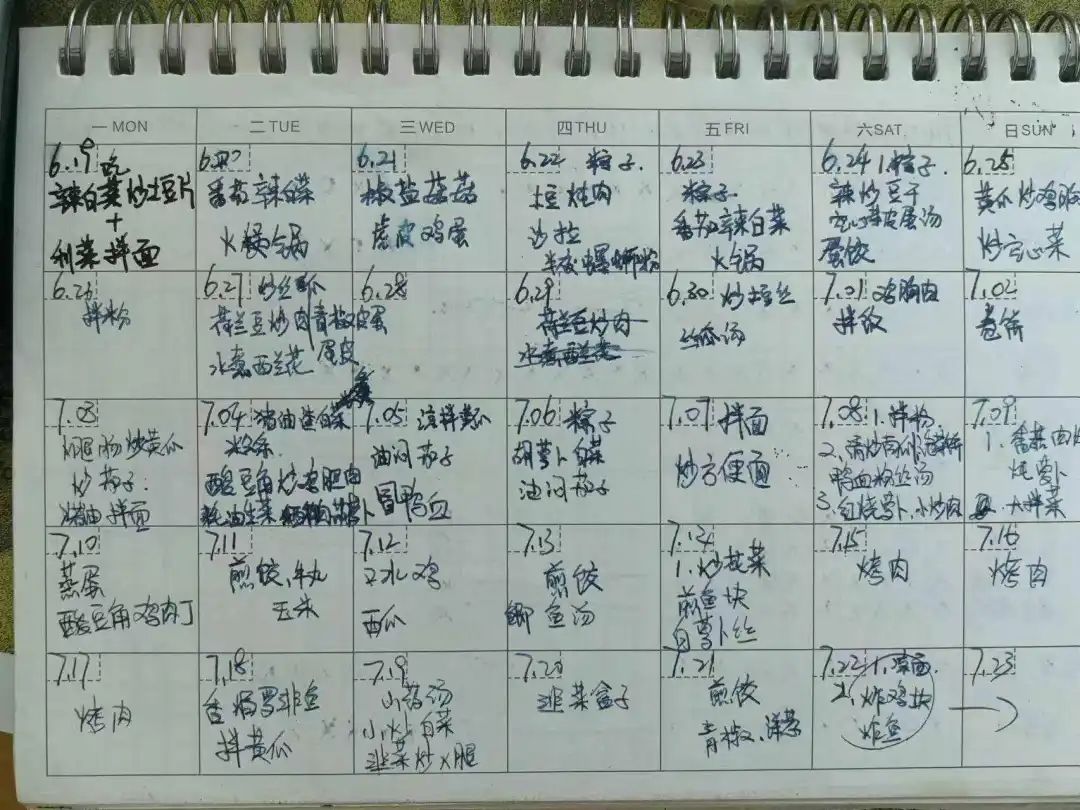 一MON 二TUE 三WED 四THU 五FRI 六SAT. 日SUN
6.19 吃
辣白菜炒土豆片
+
利菜拌面
6.20
番茄辣白菜
火锅
6.21
椒盐蘑菇
虎皮鸡蛋
6.22 粽子.
土豆炖肉
沙拉
螺蛳粉
6.23
粽子.
番茄辣白菜
火锅
6.24 1.粽子.
辣炒豆干
皮蛋汤
蛋饺
6.25
黄瓜炒鸡胸
炒空心菜
6.26
拌粉
6.27 炒丝瓜
荷兰豆炒肉
水煮西兰花
6.28
青椒皮蛋
蛋皮
6.29
荷兰豆炒肉
水煮西兰花
6.30 炒土豆丝
丝瓜汤
7.01 鸡胸肉
拌饭
7.02
卷饼
7.03
炒黄瓜
炒茄子.
猪油拌面
7.04 猪油渣白菜
酸豆角炒鸡腿肉
耗油生菜
7.05 凉拌黄瓜
油闷茄子
冒鸭血
7.06 粽子
胡萝卜白菜
油闷茄子
7.07 拌面
炒方便面
7.08 1.拌粉
2、清炒南瓜
鸭血粉丝汤
3.红烧萝卜、小炒肉
7.09
1.
炖萝卜
大拌菜
7.10
蒸蛋
酸豆角鸡肉丁
7.11
煎饺、牛丸
玉米
7.12
口水鸡
西瓜
7.13
煎饺
鲫鱼汤
7.14
1.炒花菜
煎鱼块
白萝卜丝
7.15
烤肉
7.16
烤肉
7.17
烤肉
7.18
香焗罗非鱼
拌黄瓜
7.19
山药汤
小炒白菜
韭菜炒火腿
7.20
韭菜盒子
7.21
煎饺
青椒、洋葱
7.22 1.凉面
2、炸鸡块
炸鱼
7.23